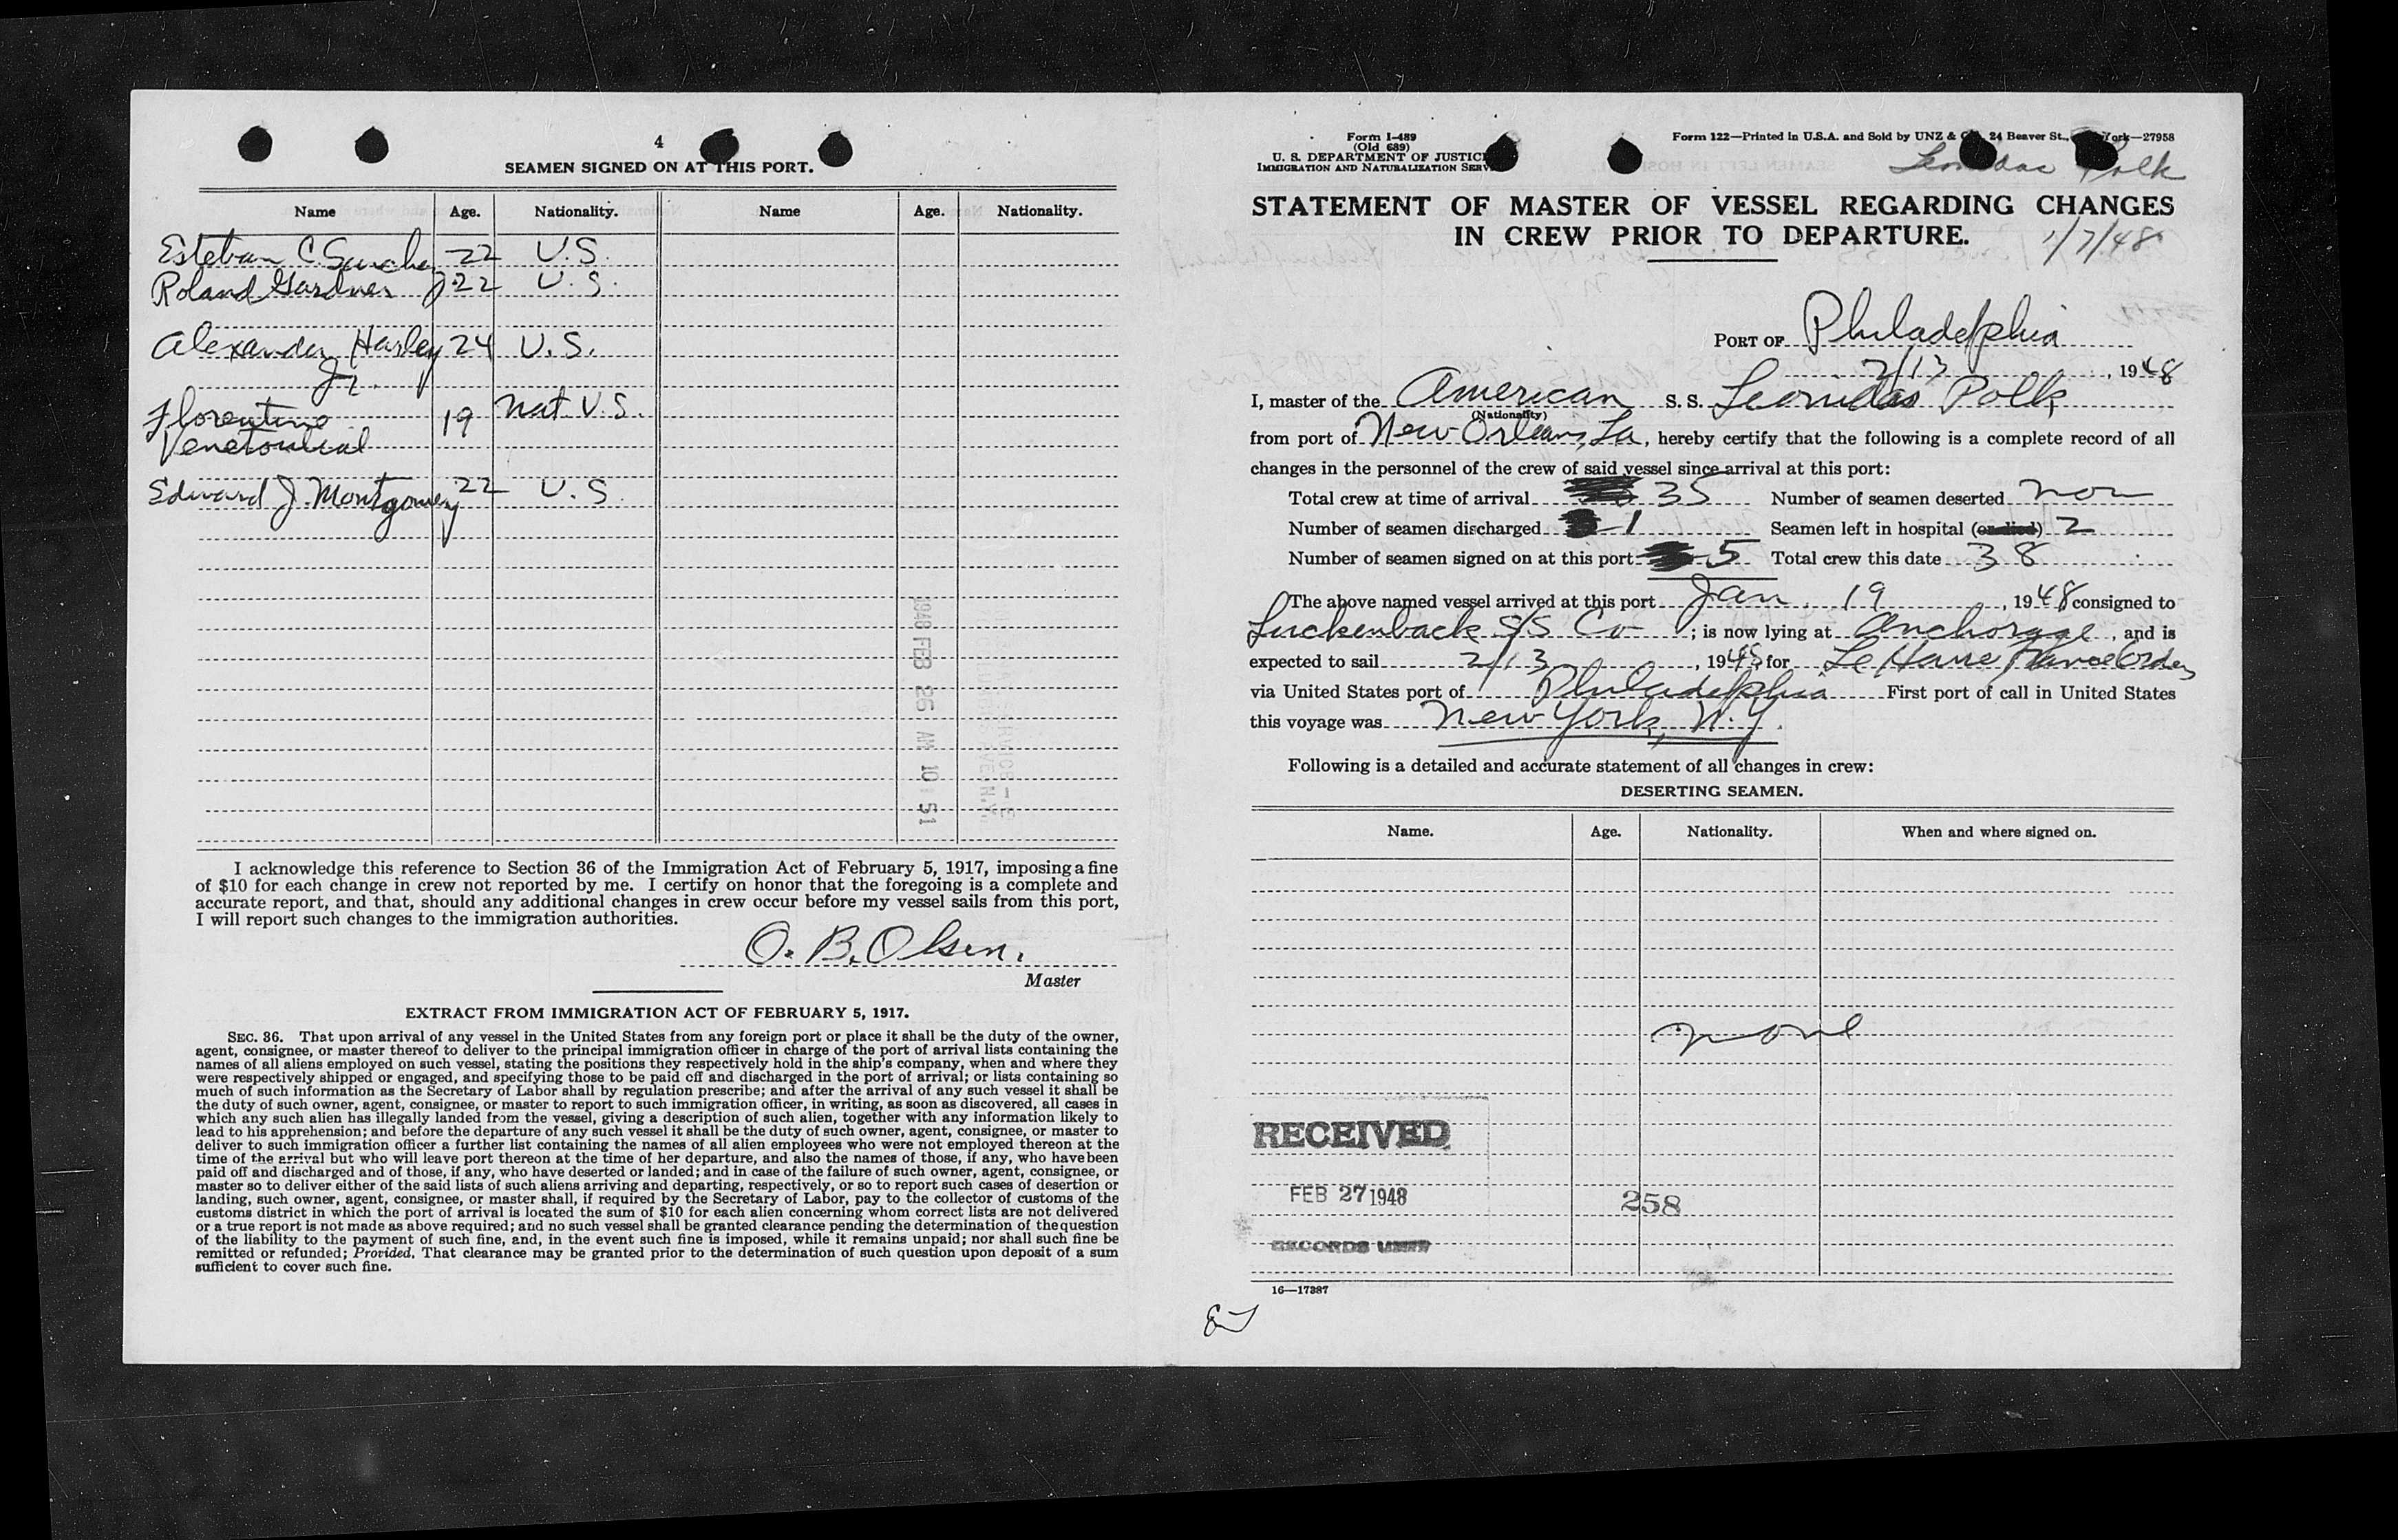 4
SEAMEN SIGNED ON AT THIS PORT.
Name Age. Nationality. Name Age. Nationality.
Esteban C. Sanchez 22 U.S.
Roland Gardner 22 U.S.
Alexander Harley 24 U.S.
Jr.
Florentino 19 Nat U.S.
Edward J. Montgomery 22 U.S.
1948 FEB 26 AM 10 51
I acknowledge this reference to Section 36 of the Immigration Act of February 5, 1917, imposing a fine
of $10 for each change in crew not reported by me. I certify on honor that the foregoing is a complete and
accurate report, and that, should any additional changes in crew occur before my vessel sails from this port,
I will report such changes to the immigration authorities.
O. B. Olsen.
Master
EXTRACT FROM IMMIGRATION ACT OF FEBRUARY 5, 1917.
SEC. 36. That upon arrival of any vessel in the United States from any foreign port or place it shall be the duty of the owner,
agent, consignee, or master thereof to deliver to the principal immigration officer in charge of the port of arrival lists containing the
names of all aliens employed on such vessel, stating the positions they respectively hold in the ship's company, when and where they
were respectively shipped or engaged, and specifying those to be paid off and discharged in the port of arrival; or lists containing so
much of such information as the Secretary of Labor shall by regulation prescribe; and after the arrival of any such vessel it shall be
the duty of such owner, agent, consignee, or master to report to such immigration officer, in writing, as soon as discovered, all cases in
which any such alien has illegally landed from the vessel, giving a description of such alien, together with any information likely to
lead to his apprehension; and before the departure of any such vessel it shall be the duty of such owner, agent, consignee, or master to
deliver to such immigration officer a further list containing the names of all alien employees who were not employed thereon at the
time of the arrival but who will leave port thereon at the time of her departure, and also the names of those, if any, who have been
paid off and discharged and of those, if any, who have deserted or landed; and in case of the failure of such owner, agent, consignee, or
master so to deliver either of the said lists of such aliens arriving and departing, respectively, or so to report such cases of desertion or
landing, such owner, agent, consignee, or master shall, if required by the Secretary of Labor, pay to the collector of customs of the
customs district in which the port of arrival is located the sum of $10 for each alien concerning whom correct lists are not delivered
or a true report is not made as above required; and no such vessel shall be granted clearance pending the determination of the question
of the liability to the payment of such fine, and, in the event such fine is imposed, while it remains unpaid; nor shall such fine be
remitted or refunded; Provided, That clearance may be granted prior to the determination of such question upon deposit of a sum
sufficient to cover such fine.
Form I-489
(Old 689)
U. S. DEPARTMENT OF JUSTICE
IMMIGRATION AND NATURALIZATION SERV
Form 122—Printed in U.S.A. and Sold by UNZ & Co. 24 Beaver St., York—27958
Leonidas Polk
STATEMENT OF MASTER OF VESSEL REGARDING CHANGES
IN CREW PRIOR TO DEPARTURE.
1/7/48
PORT OF Philadelphia
2/13, 1948
I, master of the American S. S. Leonidas Polk
(Nationality)
from port of New Orleans, La, hereby certify that the following is a complete record of all
changes in the personnel of the crew of said vessel since arrival at this port:
Total crew at time of arrival 35 Number of seamen deserted non
Number of seamen discharged 1 Seamen left in hospital (or died) 2
Number of seamen signed on at this port 5 Total crew this date 38
The above named vessel arrived at this port Jan. 19, 1948 consigned to
Luckenback S/S Co; is now lying at Anchorage, and is
expected to sail 2/13, 1948 for Le Havre France
via United States port of Philadelphia First port of call in United States
this voyage was New York, N.Y.
Following is a detailed and accurate statement of all changes in crew:
DESERTING SEAMEN.
Name. Age. Nationality. When and where signed on.
none
RECEIVED
FEB 27 1948
258
RECORDS UNIT
16—17387